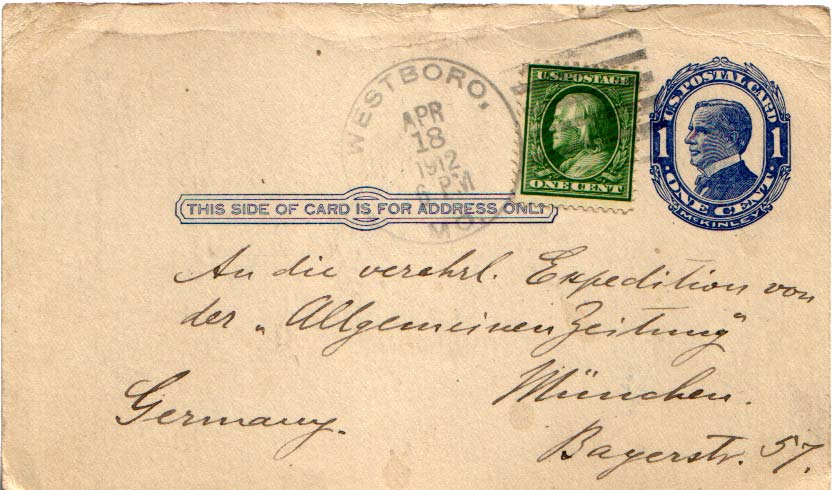 WESTBORO,
APR
18
1912
6 PM
MO.
U.S. POSTAGE
ONE CENT
U.S. POSTAL CARD
1 1
· ONE CENT ·
MCKINLEY
THIS SIDE OF CARD IS FOR ADDRESS ONLY
An die verehrl. Expedition von
der „Allgemeinen Zeitung“
München.
Germany.
Bayerstr. 57.